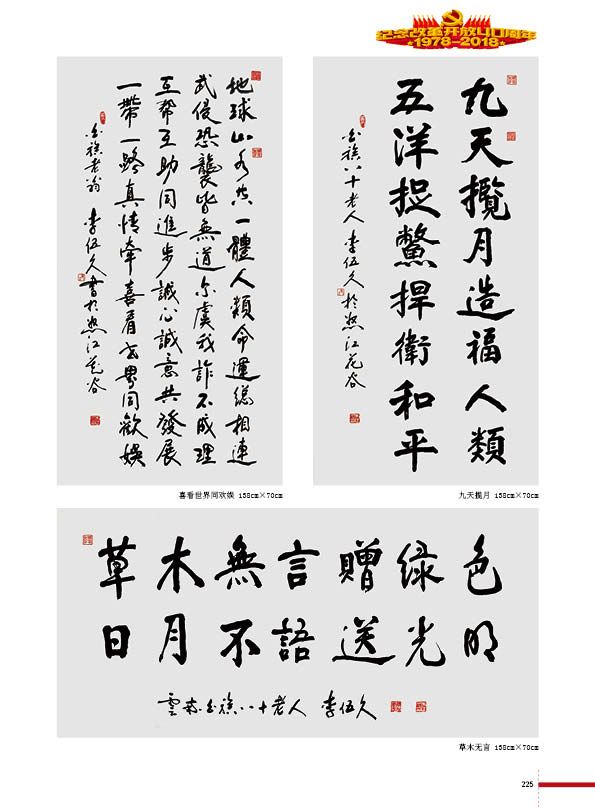 纪念改革开放40周年
1978-2018
地球山水共一體人類命運總相連
武侵恐襲皆無道尔虞我詐不成理
互幫互助同進步誠心誠意共發展
一帶一路真情牽喜看世界同歡娛
白族老翁 李伍久書於怒江花谷
喜看世界同欢娱 158cm×70cm
九天攬月造福人類
五洋捉鱉捍衛和平
白族八十老人 李伍久於怒江花谷
九天揽月 158cm×70cm
草木無言贈绿色
日月不語送光明
雲南白族八十老人 李伍久
草木无言 158cm×70cm
225